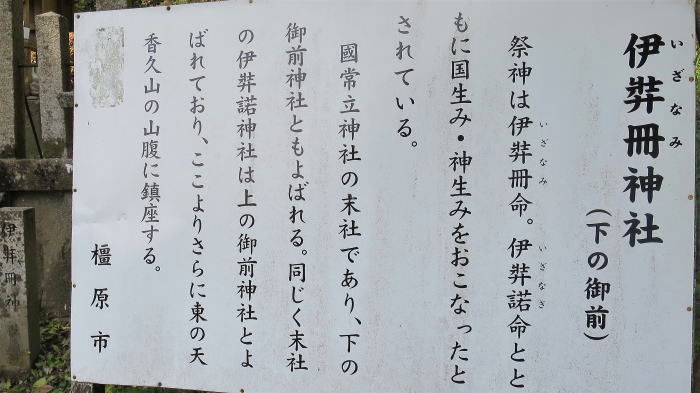 伊弉冊神社
いざなみ
(下の御前)
祭神は伊弉冊命。伊弉諾命とと
いざなみ
いざなぎ
もに国生み・神生みをおこなったと
されている。
國常立神社の末社であり、下の
御前神社ともよばれる。同じく末社
の伊弉諾神社は上の御前神社とよ
ばれており、ここよりさらに東の天
香久山の山腹に鎮座する。
橿原市
伊弉冊神